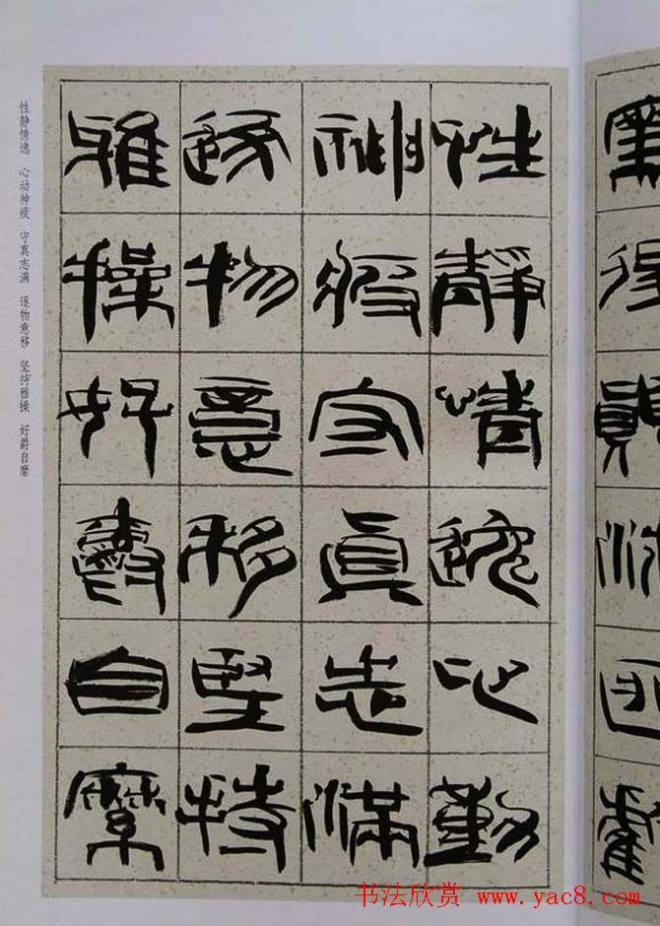 性靜情逸心動
神疲守眞志滿
逐物意移堅持
雅操好爵自縻
性静情逸 心动神疲 守真志满 逐物意移 坚持雅操 好爵自縻
书法欣赏 www.yac8.com